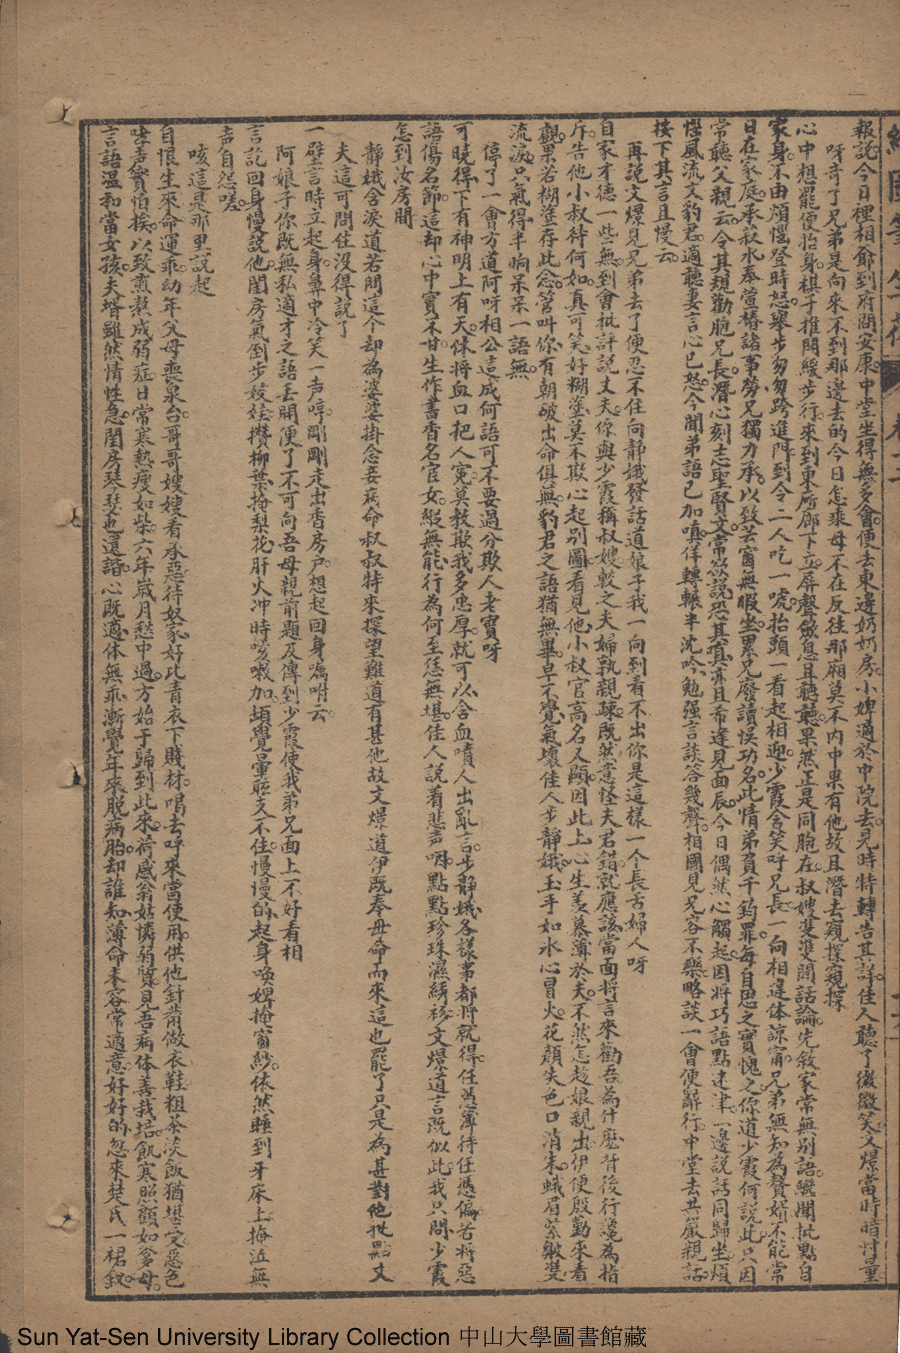 報說今日裡相爺到府問安康中堂坐得無多會便去東邊奶奶房小婢適於中院去見時特轉告其詳佳人聽了微微笑文爆當時暗忖量
呀奇了兄弟是向來不到那邊去的今日怎乘母不在反往那廂莫不內中果有他故且潛去窺探窺探
心中想罷便抬身棋子推開緩步行來到東所廊下立屏聲斂息且聽聽果然正是同胞在叔嫂雙雙閒話論先敘家常無別語纔開批點自
家身不由煩惱登時怒舉步匆匆跨進門到今二人吃一唬抬頭一看起相迎少霞含笑呼兄長一向相違体諒甯兄弟無知為贅婿不能常
日在家庭承菽水奉萱椿諸事勞兄獨力承以致芸窗無暇坐累兄廢讀悞功名此情弟負千鈞罪每自思之實愧之你道少霞何說此只因
常聽父親云令其規勸胞兄長潛心刻志聖賢文常欲說恐其真亦且希逢見面辰今日偶然心觸起因將巧語點迷津一邊說話同歸坐煩
惱風流文豹君適聽妻言心已怒今聞弟語已加嗔佯轉輾半沈吟勉强言談答幾聲相國見兄容不樂略談一會便辭行中堂去其嚴親話
按下其言且慢云
再說文爆見兄弟去了便忍不住向靜娥發話道娘子我一向到看不出你是這樣一个長舌婦人呀
自家才德一些無到會批評說丈夫你與少霞稱叔嫂較之夫婦孰親疎既然意怪夫君錯就應該當面將言來勸吾為什麼背後行譏為指
斥告他小叔待何如真可笑好糊塗莫不欺心起別圖看見他小叔官高名又顯因此上心生羡慕薄於夫不然怎趁娘親出伊便殷勤來看
觀果若糊塗存此念管叫你有朝破出命俱無豹君之語猶無畢卓不覺氣壞佳人步靜娥玉手如水心冒火花顏失色口消朱蛾眉縈皺雙
流淚只氣得半晌呆呆一語無
停了一會方道阿呀相公這成何語可不要過分欺人老實呀
可曉得下有神明上有天休將血口把人寃莫教欺我多忠厚就可以含血噴人出亂言步靜娥各樣事都將就得任憑薄待任憑偏若將惡
語傷名節這却心中實不甘生作書香名宦女縱無能行為何至恁無堪佳人說着悲声咽點點珍珠濕綉衫文爆道言既似此我只問少霞
怎到汝房間
靜娥含淚道若問這个却為婆婆掛念妾病命叔叔特來探望難道有甚他故文爆道伊既奉母命而來這也罷了只是為甚對他批點丈
夫這可問住沒得說了
一壁言時立起身鼻中冷笑一声哼剛剛走出香房戶想起回身囑咐云
阿娘子你既無私適才之語丟開便了不可向吾母親前題及傳到少霞使我弟兄面上不好看相
言訖回身慢說他閨房氣倒步姣娃攢柳葉掩梨花肝火冲時咳嗽加頭覺暈眩支不住慢慢的起身喚婢掩窗紗依然睡到牙床上掩泣無
声自怨嗟
咳這是那里說起
自恨生來命運乖幼年父母喪泉台哥哥嫂嫂看承惡待奴家好比青衣下賤材唱去呼來當使用供他針黹做衣鞋粗茶淡飯猶堪受惡色
哮声實怕挨以致煎熬成弱症日常寒熱瘦如柴六年歲月愁中過方始于歸到此來荷感翁姑憐弱質見吾病体善栽培飢寒照顧如爹母
言語溫和當女孩夫壻雖然情性急閨房琴瑟也還諧心既適体無乖漸覺年來脫病胎却誰知薄命未容常適意好好的忽來楚氏一裙釵
Sun Yat-Sen University Library Collection 中山大學圖書館藏